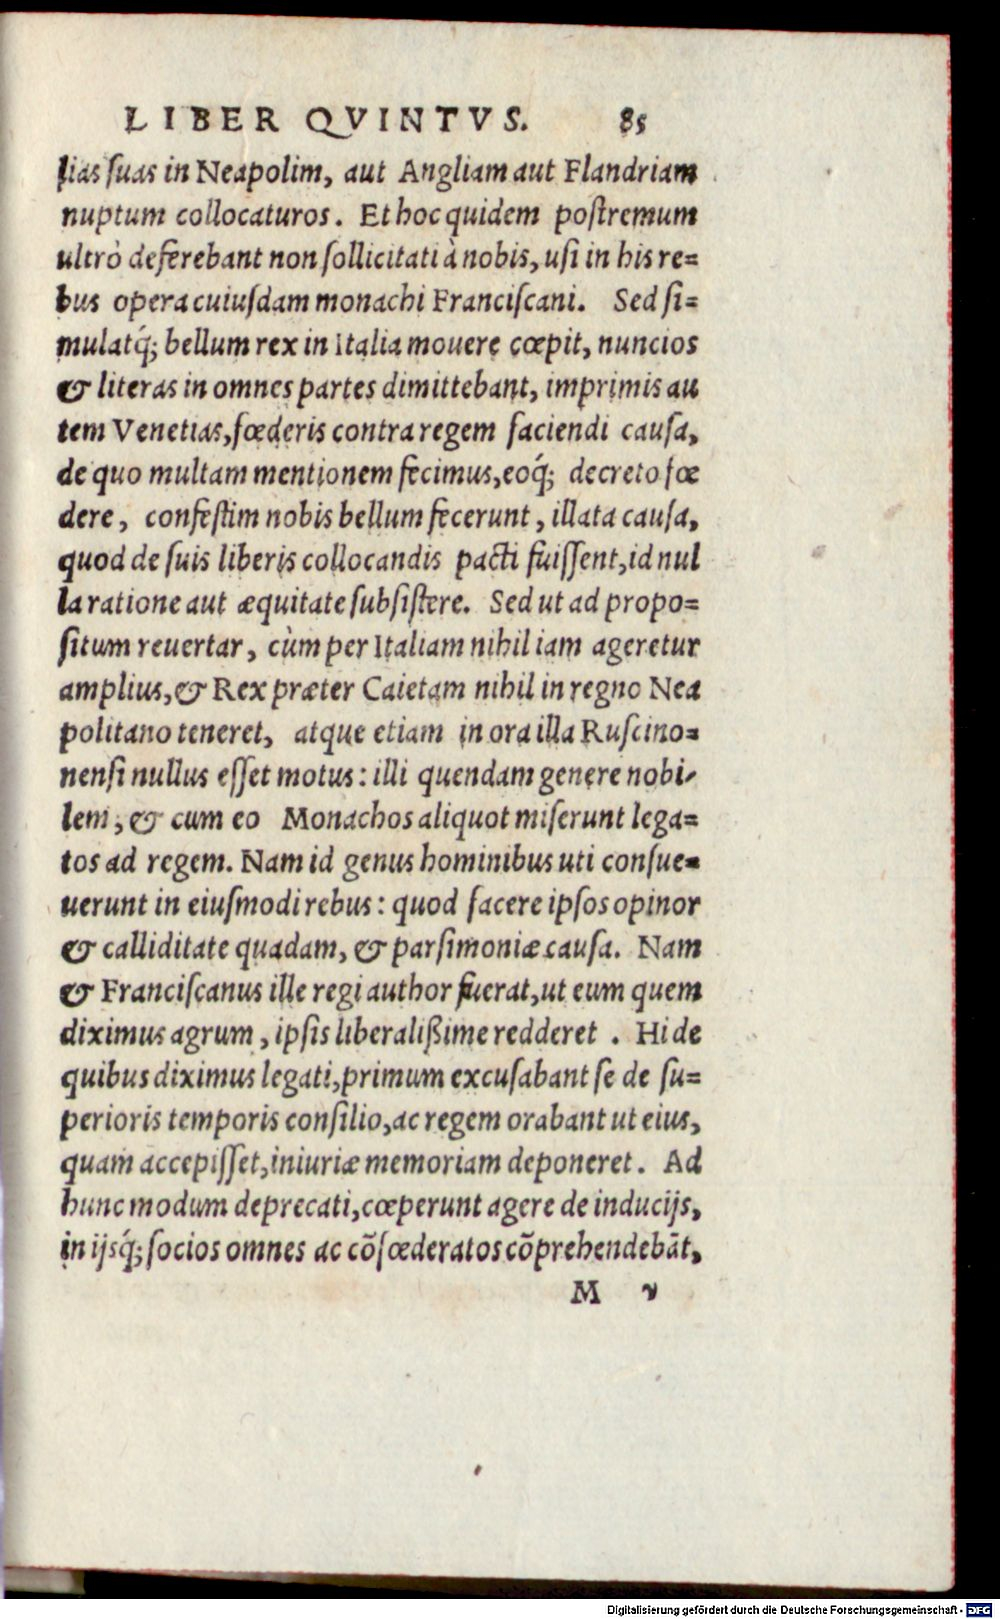 LIBER QVINTVS. 85
lias suas in Neapolim, aut Angliam aut Flandriam
nuptum collocaturos. Et hoc quidem postremum
ultrò deferebant non sollicitati à nobis, usi in his re=
bus opera cuiusdam monachi Franciscani. Sed si=
mulatq́; bellum rex in Italia mouere cœpit, nuncios
& literas in omnes partes dimittebant, imprimis au
tem Venetias, fœderis contra regem faciendi causa,
de quo multam mentionem fecimus, eoq́; decreto fœ
dere, confestim nobis bellum fecerunt, illata causa,
quod de suis liberis collocandis pacti fuissent, id nul
la ratione aut æquitate subsistere. Sed ut ad propo=
situm reuertar, cùm per Italiam nihil iam ageretur
amplius, & Rex præter Caietam nihil in regno Nea
politano teneret, atque etiam in ora illa Ruscino=
nensi nullus esset motus: illi quendam genere nobi=
lem, & cum eo Monachos aliquot miserunt lega=
tos ad regem. Nam id genus hominibus uti consue=
uerunt in eiusmodi rebus: quod facere ipsos opinor
& calliditate quadam, & parsimoniæ causa. Nam
& Franciscanus ille regi author fuerat, ut eum quem
diximus agrum, ipsis liberalißime redderet. Hi de
quibus diximus legati, primum excusabant se de su=
perioris temporis consilio, ac regem orabant ut eius,
quam accepisset, iniuriæ memoriam deponeret. Ad
hunc modum deprecati, cœperunt agere de inducijs,
in ijsq́; socios omnes ac cõfœderatos cõprehendebãt,
M v
Digitalisierung gefördert durch die Deutsche Forschungsgemeinschaft - DFG